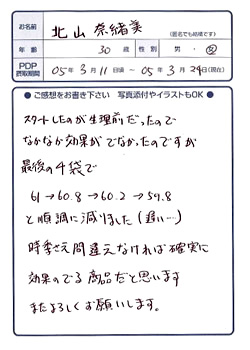 お名前 北山奈緒美 (匿名でも結構です)
年齢 30歳 性別 男・女
PDP摂取期間 05年3月11日頃 ～ 05年3月29日(現在)
● ご感想をお書き下さい 写真添付やイラストもOK ●
スタートしたのが生理前だったので
なかなか効果がでなかったのですが
最後の4袋で
61→60.8→60.2→59.8
と順調に減りました(遅い…)
時季さえ間違えなければ確実に
効果のでる商品だと思います
またよろしくお願いします。